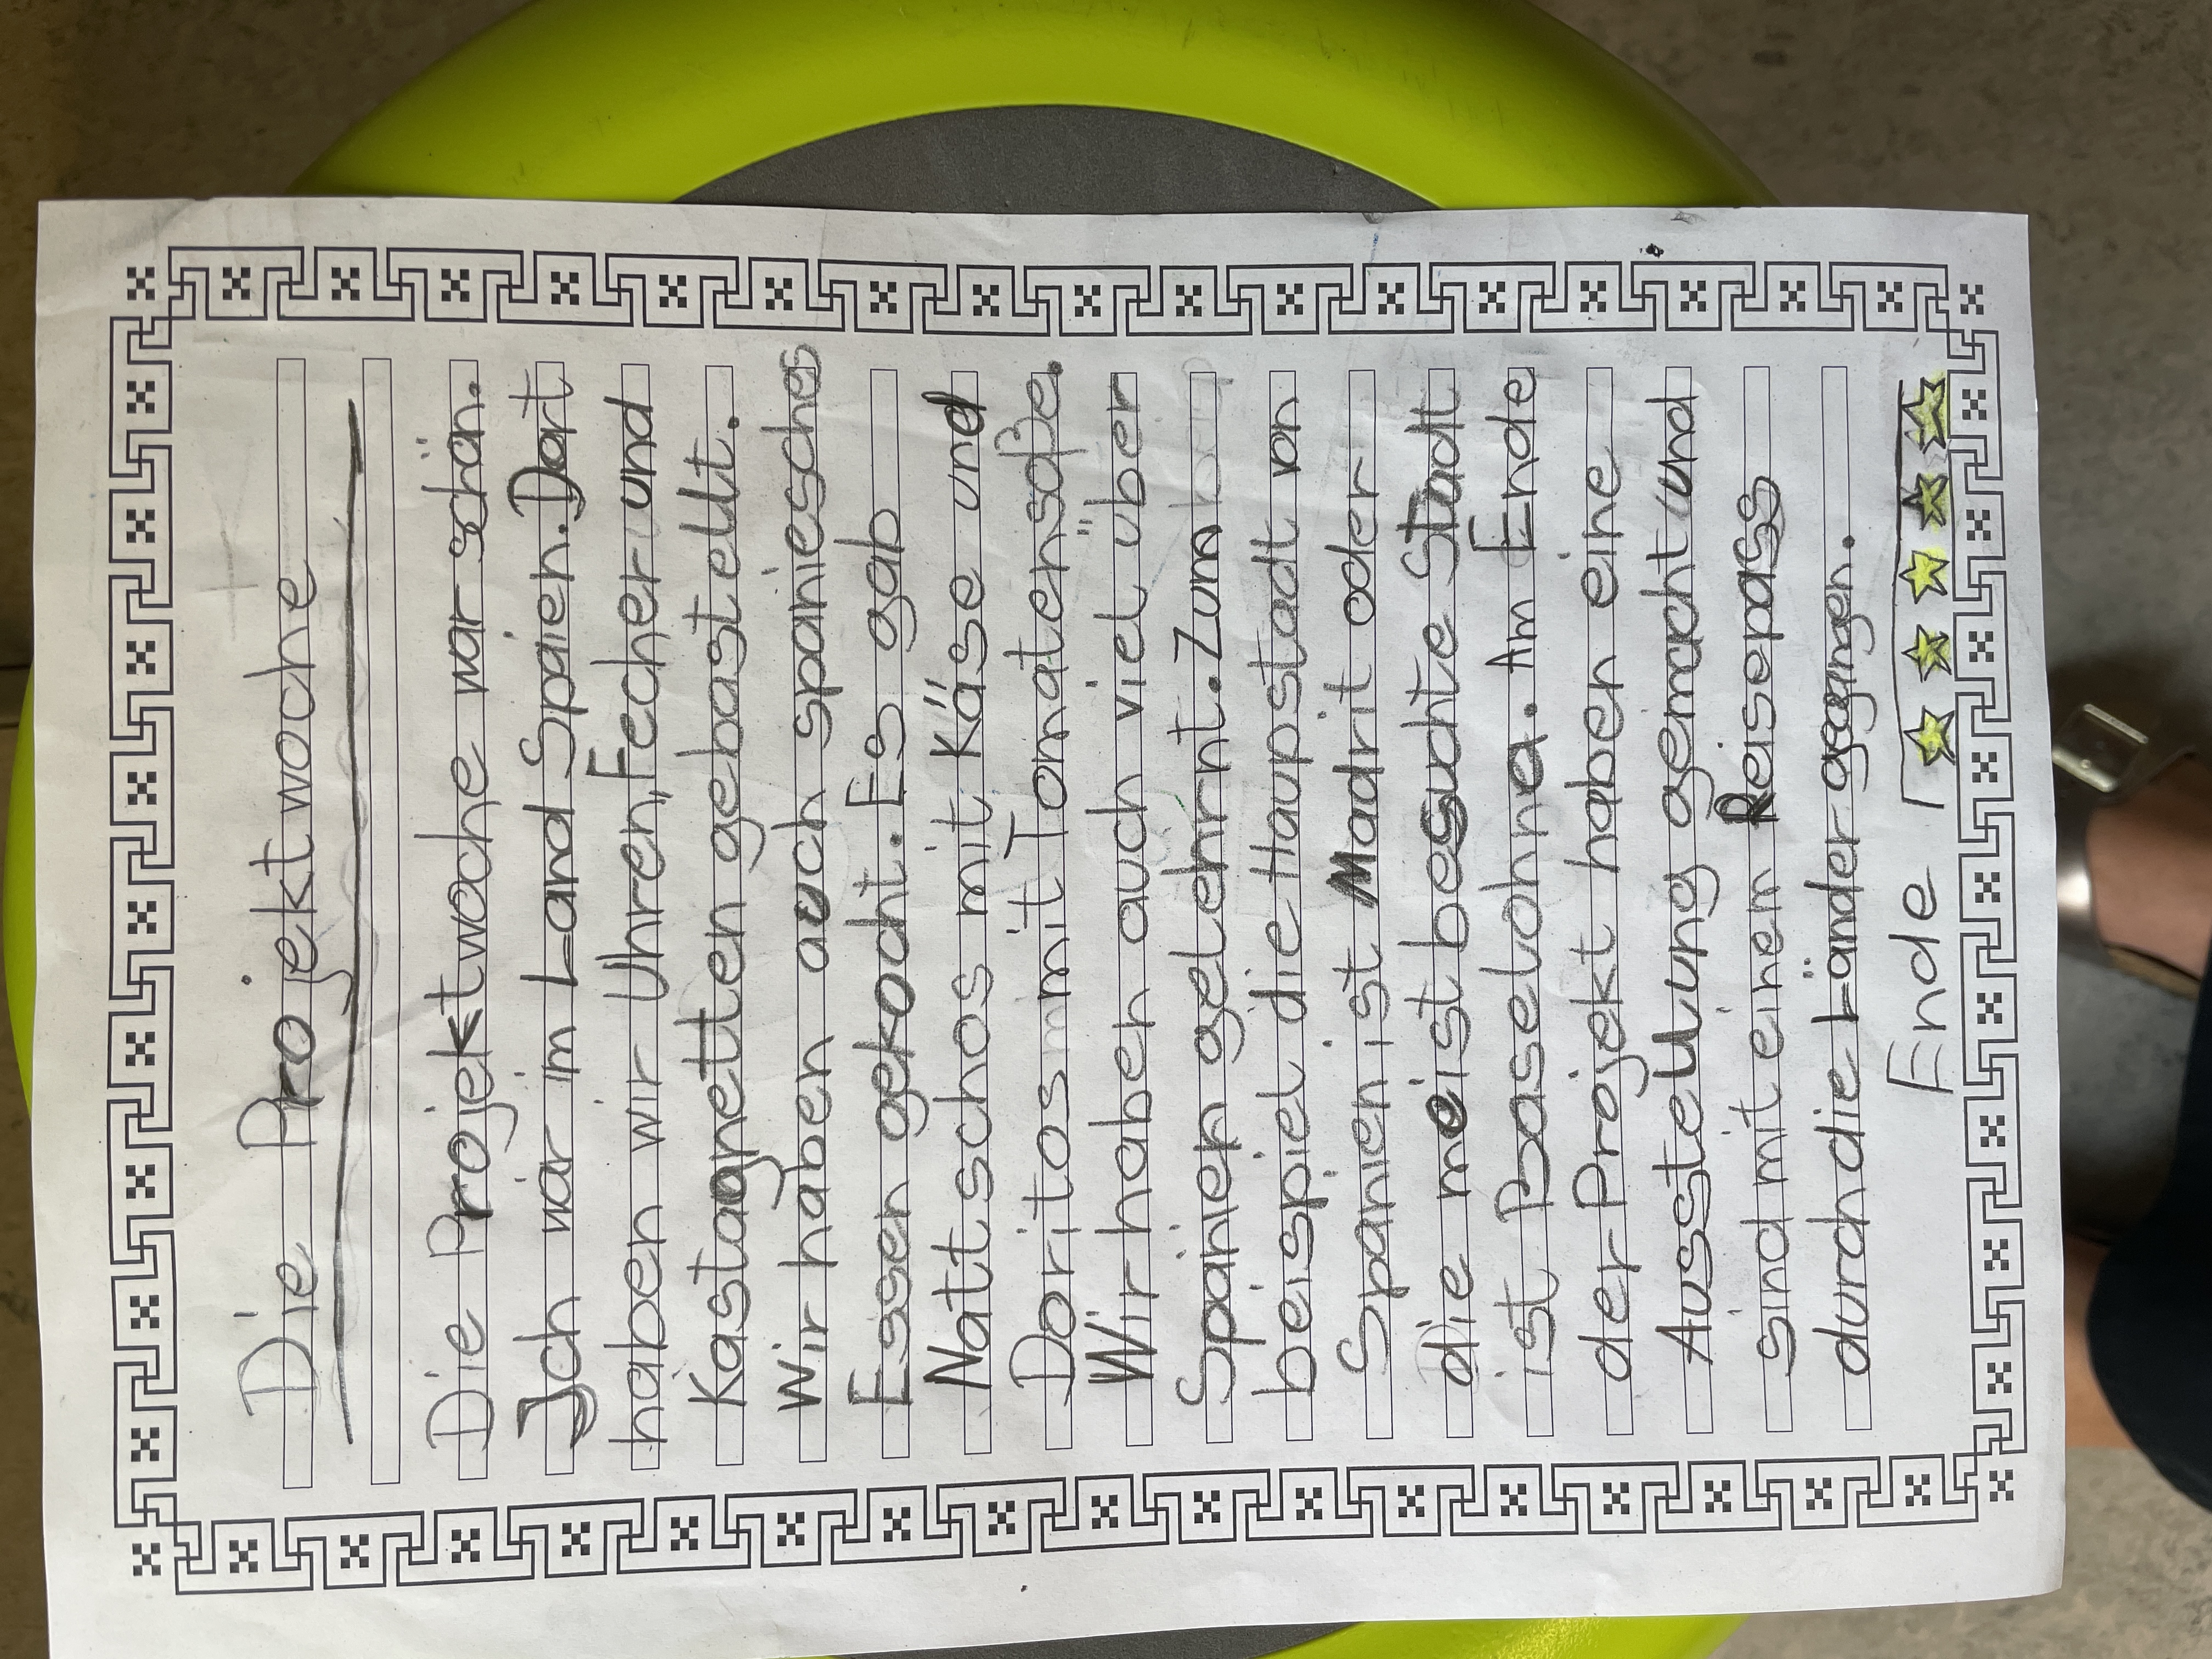 Die Projektwoche
Die Projektwoche war schön.
Ich war im Land Spaien. Dort
haben wir Uhren, Fecher und
Kastagnetten gebastellt.
Wir haben auch spaniesches
Essen gekocht. Es gab
Nattschos mit Käse und
Doritos mit Tomatensoße.
Wir haben auch viel über
Spanien gelehrnt. Zum
beispiel die Haupstadt von
Spanien ist Madrit oder
die meist besuchte Stadt
ist Baselohna. Am Ende
der Projekt haben eine
Ausstellung gemacht und
sind mit einem Reisepass
durch die Länder gegangen.
Ende